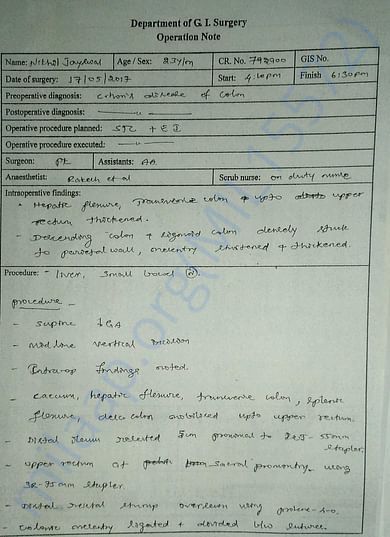 Department of G. I. Surgery
Operation Note
Name: Nikhil Jayswal Age / Sex: 23y/m CR. No. 792900 GIS No.
Date of surgery: 17/05/2017 Start: 4:10pm Finish 6:30pm
Preoperative diagnosis: Crohn's disease of colon
Postoperative diagnosis:
Operative procedure planned: STC + EI
Operative procedure executed:
Surgeon: Assistants: AA
Anaesthetist: Rakesh et al Scrub nurse: on duty nurse
Intraoperative findings:
Hepatic flexure, Transverse colon upto upper
rectum thickened.
- Descending colon + sigmoid colon densely stuck
to parietal wall, mesentry shortened + thickened.
Procedure: - liver, small bowel (N).
procedure -
- supine ↓GA
- midline vertical incision
- Intra-op findings noted.
- caecum, hepatic flexure, transverse colon, splenic
flexure, desc colon mobilised upto upper rectum.
- Distal ileum resected 5cm proximal to 55mm
stapler.
- upper rectum at sacral promontry using
75mm stapler.
- Distal rectal stump oversewn using prolene
- colonic mesentry ligated + divided b/w sutures.
onlinehp.org